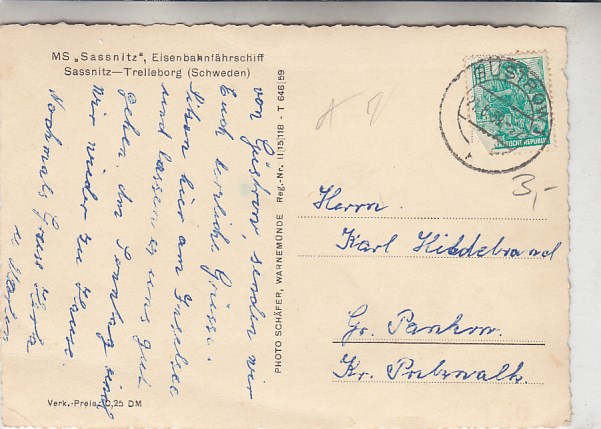 MS „Sassnitz", Eisenbahnfährschiff
Sassnitz—Trelleborg (Schweden)
von Güstrow, senden wir
Euch herzliche Grüsse.
Sitzen hier am Inselsee
und lassen es uns gut
gehen. Am Sonntag sind
wir wieder zu Hause.
Nochmals Gruss
u.
Verk.-Preis: 0,25 DM
PHOTO SCHÄFER, WARNEMÜNDE Reg.-Nr. II|15|118 - T 646|59
GÜSTROW
REPUBLIK
3,-
Herrn
Karl Hildebrand
Gr. Pankow.
Kr. Pritzwalk.